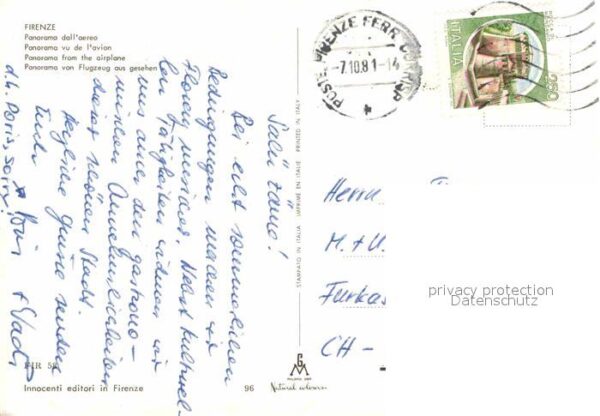 FIRENZE
Panorama dall'aereo
Panorama vu de l'avion
Panorama from the airplane
Panorama von Flugzeug aus gesehen
POSTE FIRENZE FERR.
-7.10.81-14
ITALIA
Salü zäme!
Bei echt sommerlichen
Bedingungen machen wir
Florenz unsicher. Nebst kulturel-
len Tätigkeiten widmen wir
uns auch den gastrono-
mischen Annehmlichkeiten
dieser schönen Stadt.
Herzliche Grüsse senden
Euch
Doris
d.h. Doris, sorry!
STAMPATO IN ITALIA IMPRIMÉ EN ITALIE PRINTED IN ITALY
Herrn
M. + U.
Furkas
CH -
privacy protection
Datenschutz
Innocenti editori in Firenze
96
Natural colours